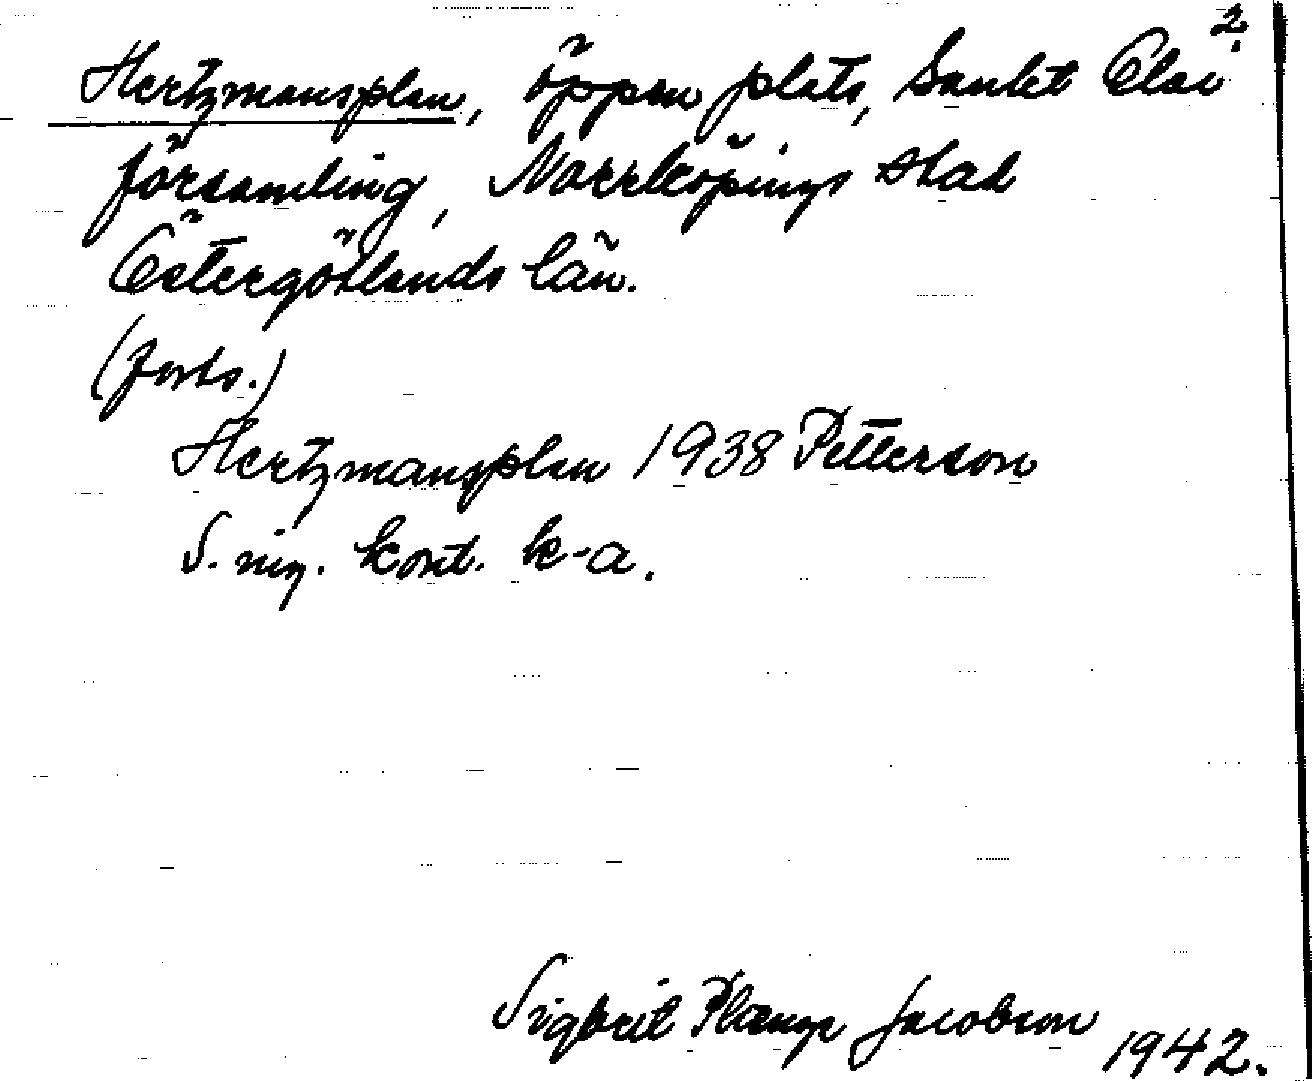 2.
Hertzmansplan, öppen plats, Sankt Olai
församling, Norrköpings stad
Östergötlands län.
(forts.)
Hertzmansplan 1938 Petterson
S. ing. kont. k-a.
Sigbrit Plænge Jacobson 1942.